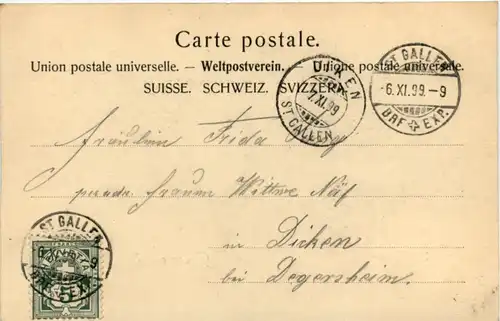 Carte postale.
Union postale universelle. — Weltpostverein. — Unione postale universale.
SUISSE. SCHWEIZ. SVIZZERA.
KEN
7.XI.99
ST GALLEN
ST GALLEN
-6.XI.99.-9
BRF EXP.
Fräulein Frida
Wittwe Näf
in Dicken
bei Degersheim.
ST GALLEN
BRF EXP.
5